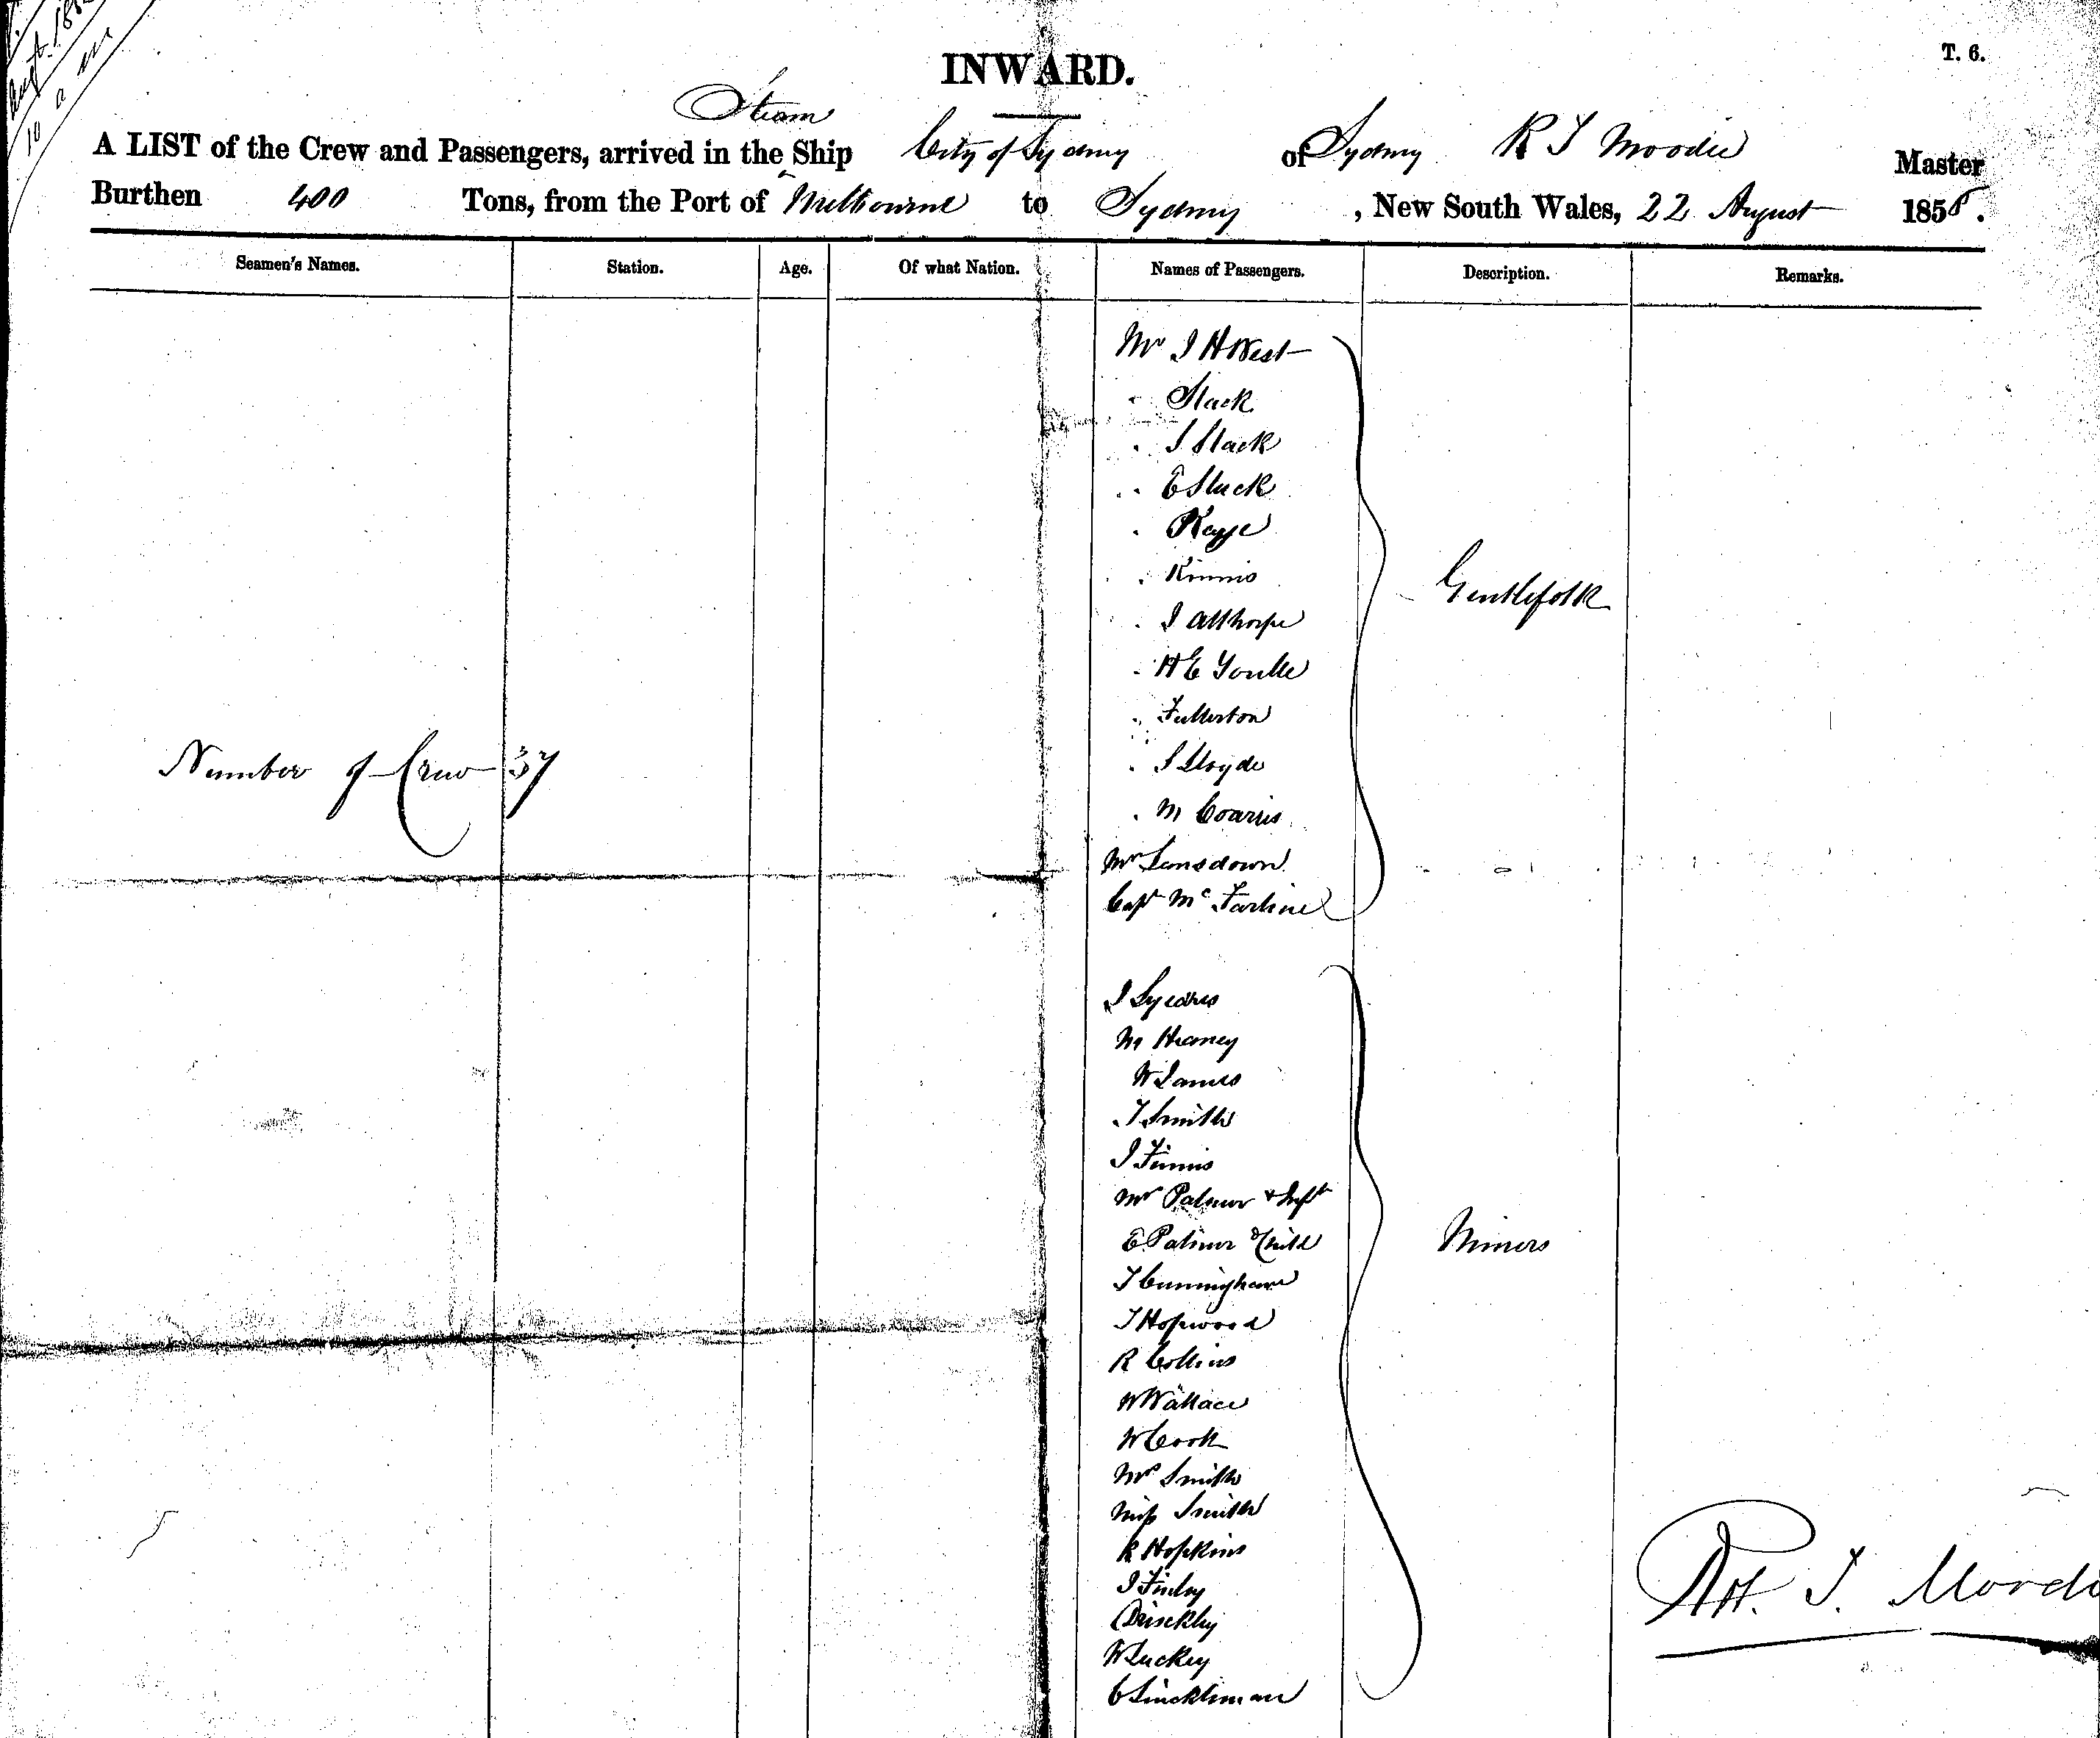 Augt. 185
10 a m
T. 6.
INWARD.
Steam
A LIST of the Crew and Passengers, arrived in the Ship City of Sydney of Sydney R T Moodie Master
Burthen 400 Tons, from the Port of Melbourne to Sydney, New South Wales, 22 August 1858.
Seamen's Names. Station. Age. Of what Nation. Names of Passengers. Description. Remarks.
Mr J H West
" Slack
" J Slack
" E Slack
" Kaye
" Kinnis
" J Allthorpe
" H E Youlle
" Fullerton
" J Lloyde
" M
Mr Lansdown
Capt Mc Farline
Gentlefolk
Number of Crew 37
J
M Heaney
W James
T Smith
J Finnis
Mr Palmer & Inft
E Palmer & Child
T Cunninghame
T Hopwood
R Collins
W Wallace
W Cook
Mrs Smith
Miss Smith
R Hopkins
J Finley
Brisckley
W Luckey
C
Miners
Rt. T. Moodi